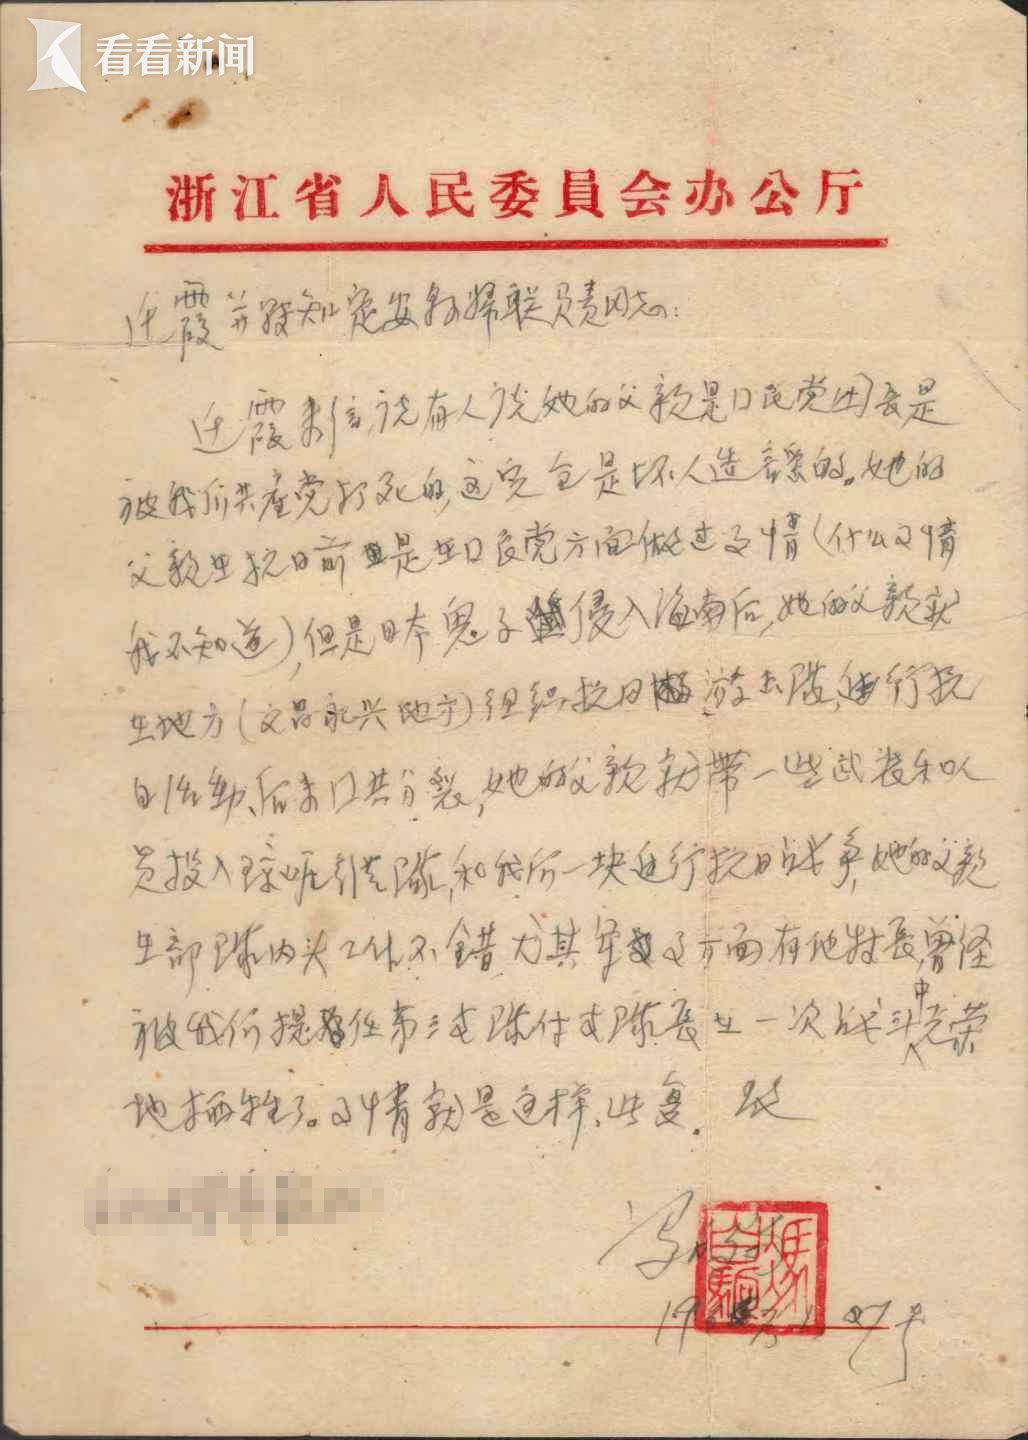 看看新闻
浙江省人民委員会办公厅
霞并转知定安县婦联负责同志:
霞来信,说有人说她的父親是囗民党团长是
被我们共産党打死的,这完全是坏人造謡的。她的
父親在抗日前是在囗民党方面做过事情(什么事情
我不知道),但是日本鬼子侵入海南后,她的父親就
在地方(文昌永兴地方)组织抗日游击隊,进行抗
日活动、后来囗共分裂,她的父親就带一些武装和人
员投入琼崖纵隊,和我们一块进行抗日战争,她的父親
在部隊内头工作不錯尤其军事方面有他特長,曾经
被我们提任第三支隊付支隊長在一次战斗中光荣
地牺牲了。事情就是这样、此复。 致
馮白駒
19